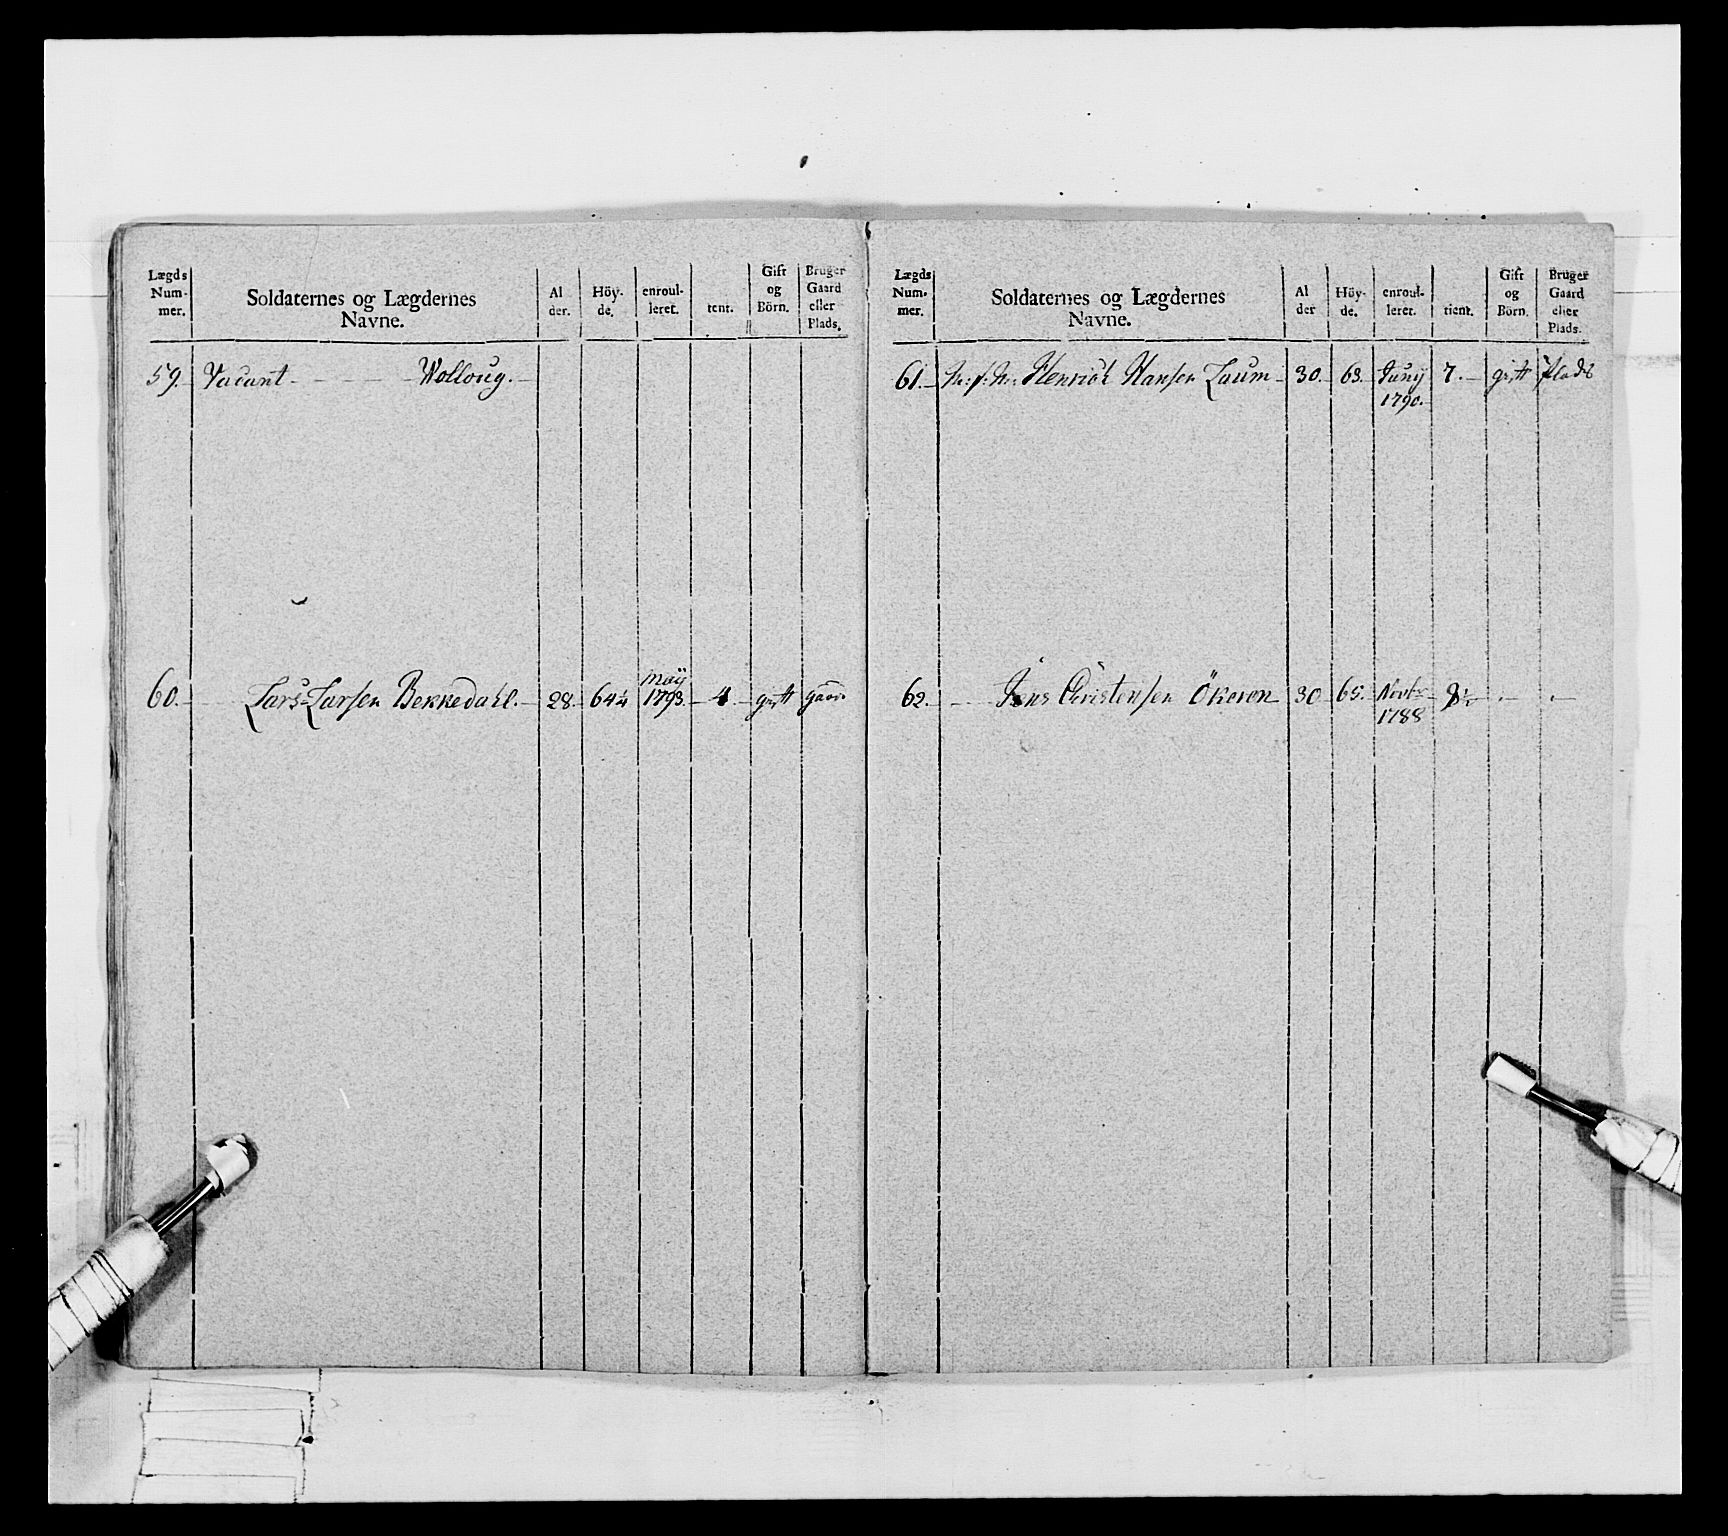 Lægds Num- mer.
Soldaternes og Lægdernes Navne.
Al der.
Höy- de.
enroul- leret.
tent.
Gift og Börn.
Bruger Gaard eller Plads.
59. Vacant - - - - Wolloug.
60. Lars Larsen Bekkedahl. 28. 64¼ Maÿ 1793. 4. gift gaard
Lægds Num- mer.
Soldaternes og Lægdernes Navne.
Al der
Höy- de.
enroul- leret.
tient.
Gift og Börn.
Bruger Gaard eller Plads.
61. Henrich Hansen Laum 30. 63. Junÿ 1790. 7. gift Plads
62. Jens Christensen Ökeren 30 65. Novbr 1788 8½ - -